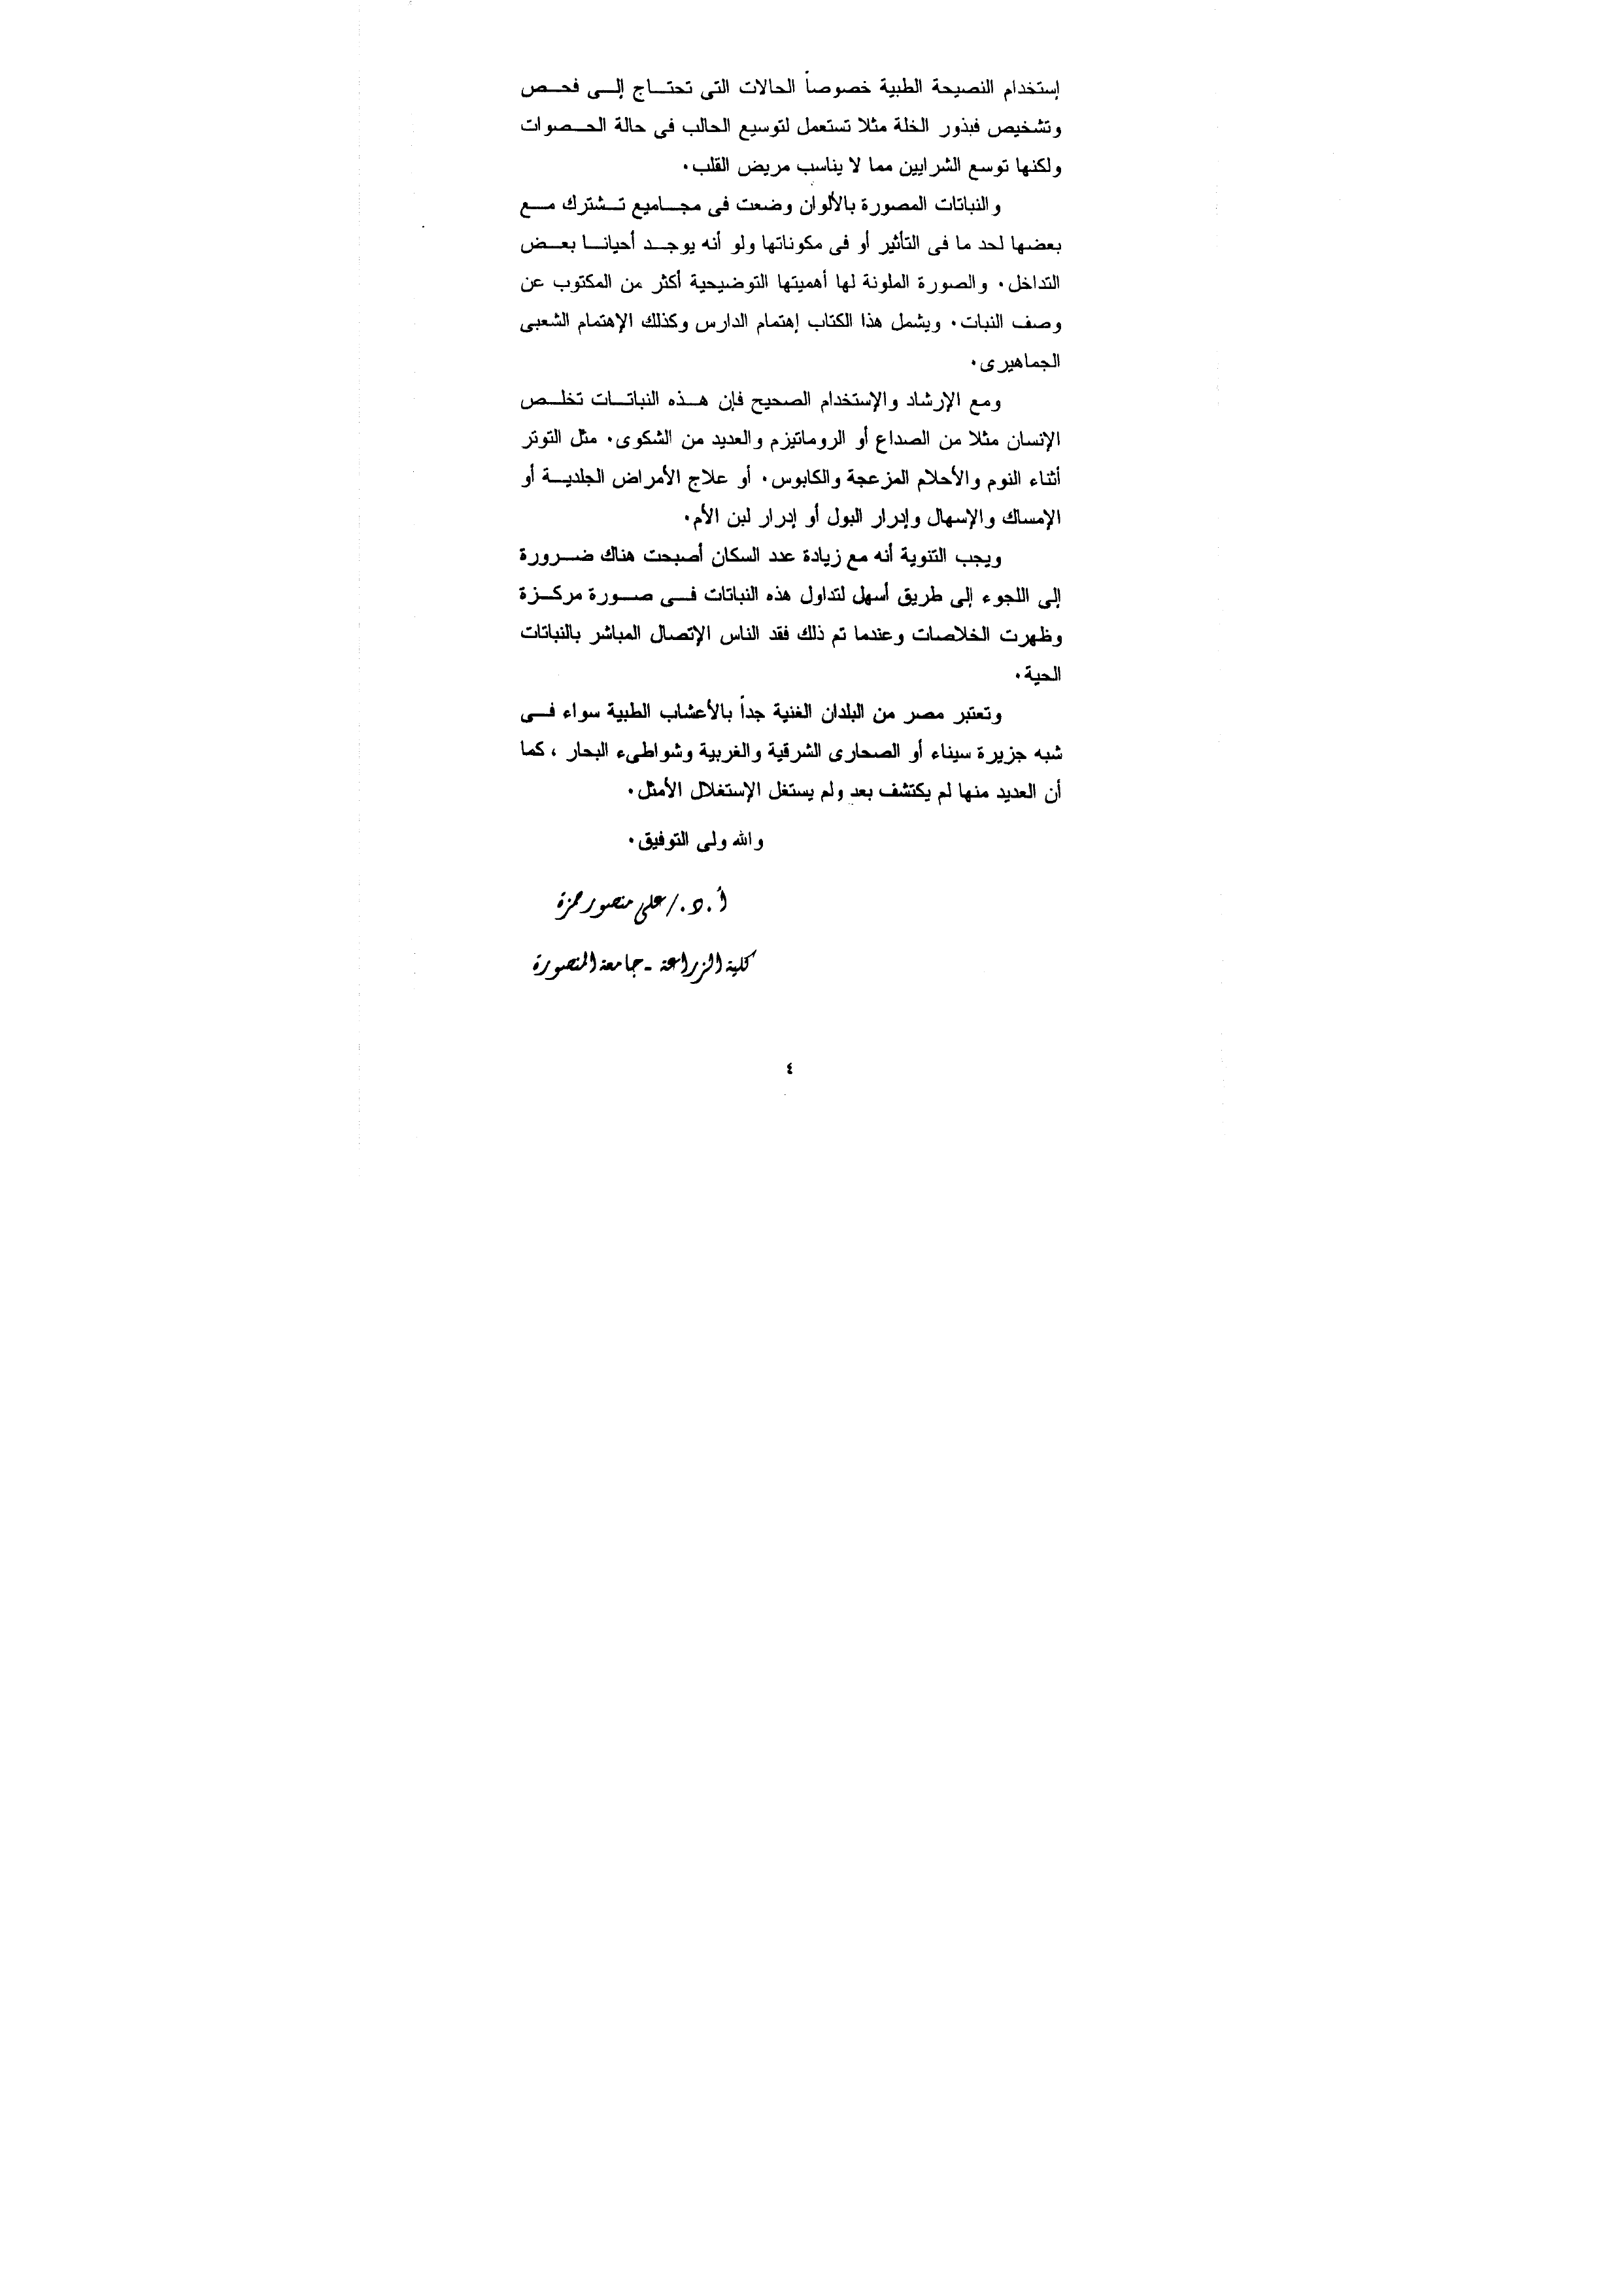 إستخدام النصيحة الطبية خصوصاً الحالات التى تحتاج إلى فحص
وتشخيص فبذور الخلة مثلا تستعمل لتوسيع الحالب فى حالة الحصوات
ولكنها توسع الشرايين مما لا يناسب مريض القلب٠
والنباتات المصورة بالألوان وضعت فى مجاميع تشترك مع
بعضها لحد ما فى التأثير أو فى مكوناتها ولو أنه يوجد أحيانا بعض
التداخل٠ والصورة الملونة لها أهميتها التوضيحية أكثر من المكتوب عن
وصف النبات٠ ويشمل هذا الكتاب إهتمام الدارس وكذلك الإهتمام الشعبى
الجماهيرى٠
ومع الإرشاد والإستخدام الصحيح فإن هذه النباتات تخلص
الإنسان مثلا من الصداع أو الروماتيزم والعديد من الشكوى٠ مثل التوتر
أثناء النوم والأحلام المزعجة والكابوس٠ أو علاج الأمراض الجلدية أو
الإمساك والإسهال وإدرار البول أو إدرار لبن الأم٠
ويجب التنوية أنه مع زيادة عدد السكان أصبحت هناك ضرورة
إلى اللجوء إلى طريق أسهل لتداول هذه النباتات فى صورة مركزة
وظهرت الخلاصات وعندما تم ذلك فقد الناس الإتصال المباشر بالنباتات
الحية٠
وتعتبر مصر من البلدان الغنية جداً بالأعشاب الطبية سواء فى
شبه جزيرة سيناء أو الصحارى الشرقية والغربية وشواطىء البحار ، كما
أن العديد منها لم يكتشف بعد ولم يستغل الإستغلال الأمثل٠
والله ولى التوفيق٠
أ.د./على منصور حمزة
كلية الزراعة - جامعة المنصورة
٤